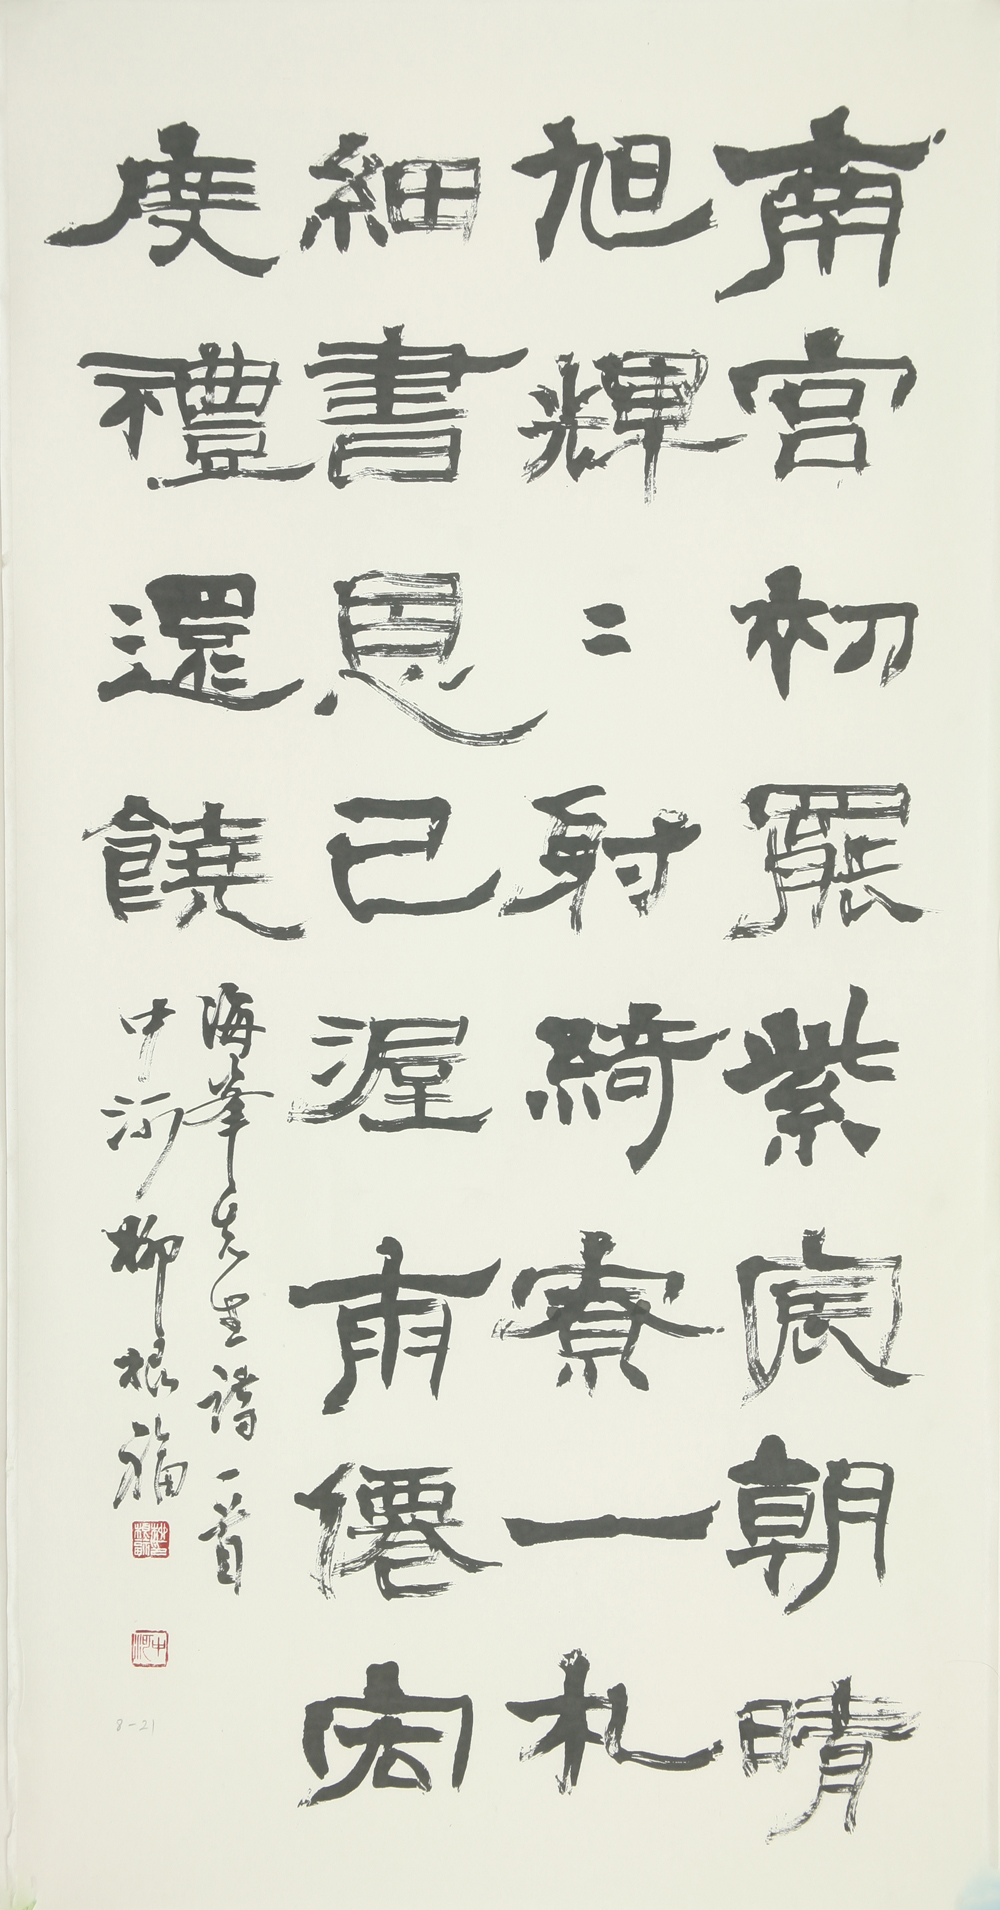 南宮初罷紫宸朝晴
旭輝〻射綺寮一札
細書恩已渥兩僊宏
度禮還饒
海峯先生詩一首
中河柳根福
中河
8-21